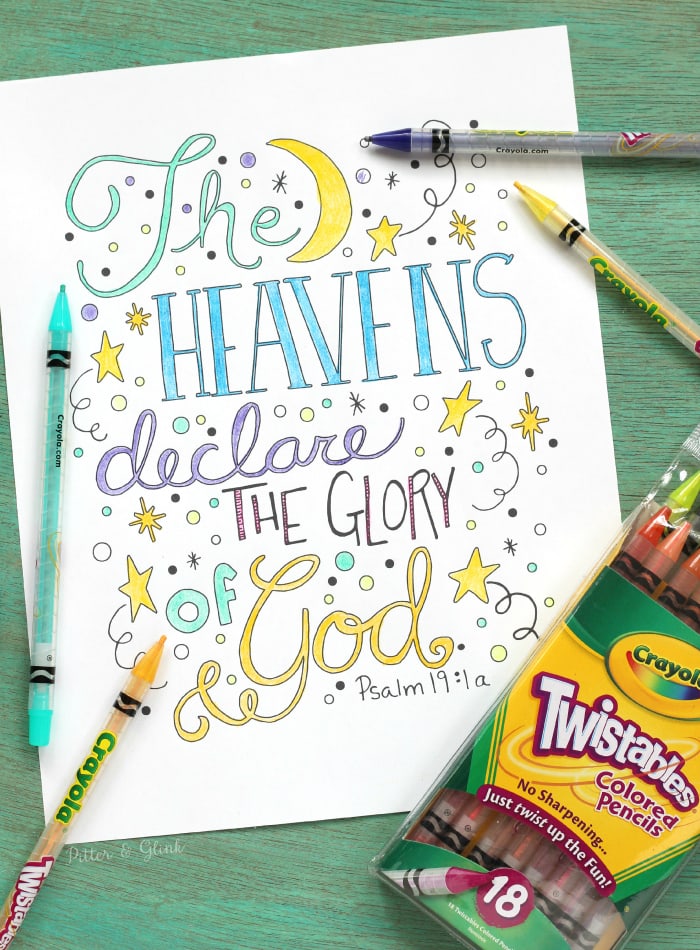 The
HEAVENS
declare
THE GLORY
of God
Psalm 19:1a
Crayola.com
Crayola
Crayola.com
Crayola
Twistables
Pitter & Glink
Crayola
Twistables
Colored
Pencils
No Sharpening...
Just twist up the Fun!
18
18 Twistables Colored